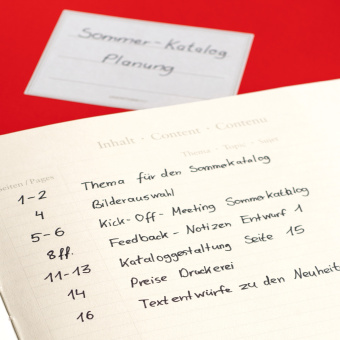 Sommer-Katalog
Planung
Inhalt · Content · Contenu
Seiten / Pages Thema · Topic · Sujet
1-2 Thema für den Sommerkatalog
4 Bilderauswahl
5-6 Kick-Off-Meeting Sommerkatalog
8 ff. Feedback-Notizen Entwurf 1
11-13 Kataloggestaltung Seite 15
14 Preise Druckerei
16 Textentwürfe zu den Neuheit